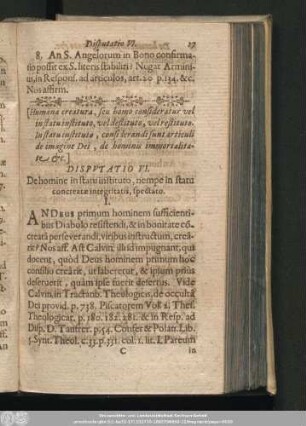 Disputatio VI. 17
8. An S. Angelorum in Bono confirma-
tio possit ex S. literis stabiliri? Negat Armini-
us, in Respons. ad articulos, art. 20 p. 134. &c.
Nos affirm.
[Humana creatura, seu homo consideratur vel
in statu instituto, vel destituto, vel restituto.
In statu instituto, considerandi sunt articuli
de imagine Dei, de hominis immortalita-
te &c.]
DISPUTATIO VI.
De homine in statu instituto, nempe in statu
concreatæ integritatis, spectato.
I.
AN DEUS primum hominem sufficienti-
bus Diabolo resistendi, & in bonitate co[n]-
creatâ perseverandi, viribus instructum, crea-
rit? Nos aff. Ast Calvin. illud impugnant, qui
docent, quòd Deus hominem primum hoc
consilio creârit, ut laberetur, & ipsum prius
deseruerit, quàm ipse fuerit desertus. Vide
Calvin. in Tractatib. Theologicis, de occultâ
Dei provid. p. 738. Piscatorem Vol. 1. Thes.
Theologicar. p. 180. 182. 281. & in Resp. ad
Disp. D. Taufrer. p. 54. Confer & Polan. Lib.
5. Synt. Theol. c. 33. p. 331. col. 1. lit. I. Pareum
C in